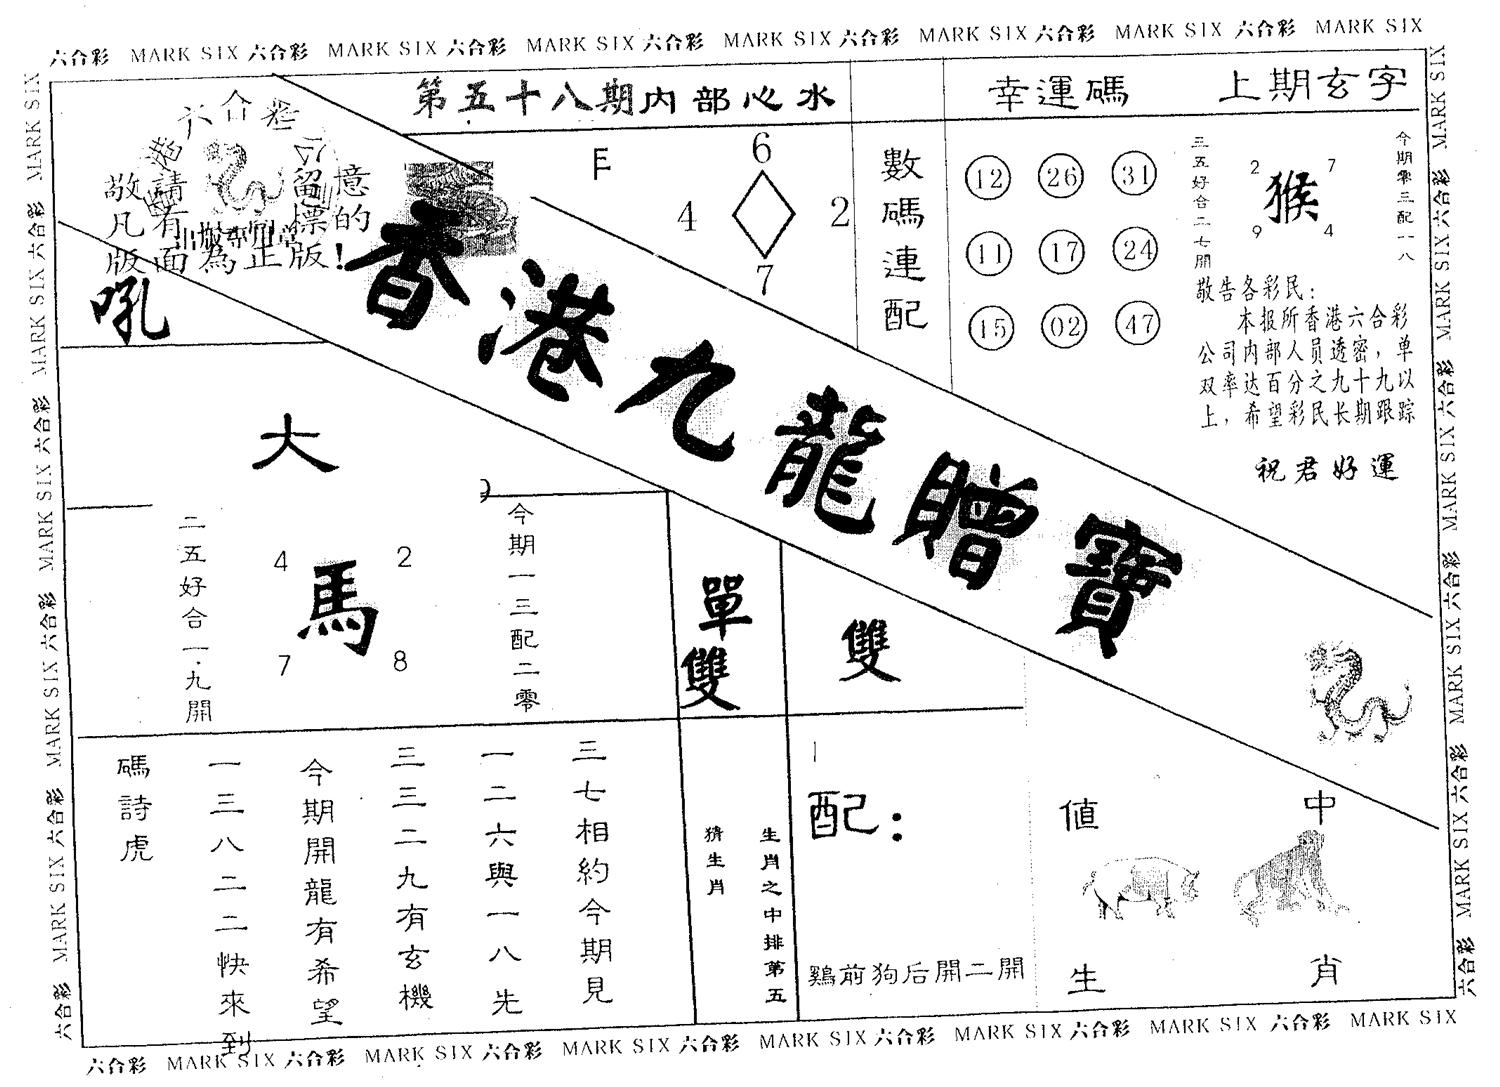 六合彩 MARK SIX 六合彩 MARK SIX 六合彩 MARK SIX 六合彩 MARK SIX 六合彩 MARK SIX 六合彩 MARK SIX 六合彩 MARK SIX
第五十八期内部心水
幸運碼
上期玄字
六合彩
敬請留意
凡有標的
版面為正版!
吼
香港九龍贈寶
6
4 2
7
數碼連配
12 26 31
11 17 24
15 02 47
三五好合二七開
2 7
猴
9 4
今期零三配一八
敬告各彩民:
本报所香港六合彩
公司内部人员透密,单
双率达百分之九十九以
上,希望彩民长期跟踪
祝君好運
大
二五好合一.九開
4 2
馬
7 8
今期一三配二零
單雙
雙
碼詩虎
一三八二二快來到
今期開龍有希望
三三二九有玄機
一二六與一八先
三七相約今期見
猜生肖
生肖之中排第五
配:
鷄前狗后開二開
値 中
生 肖
六合彩 MARK SIX 六合彩 MARK SIX 六合彩 MARK SIX 六合彩 MARK SIX 六合彩 MARK SIX 六合彩 MARK SIX 六合彩 MARK SIX
MARK SIX 六合彩 MARK SIX 六合彩 MARK SIX 六合彩 MARK SIX 六合彩 MARK SIX 六合彩
MARK SIX 六合彩 MARK SIX 六合彩 MARK SIX 六合彩 MARK SIX 六合彩 MARK SIX 六合彩